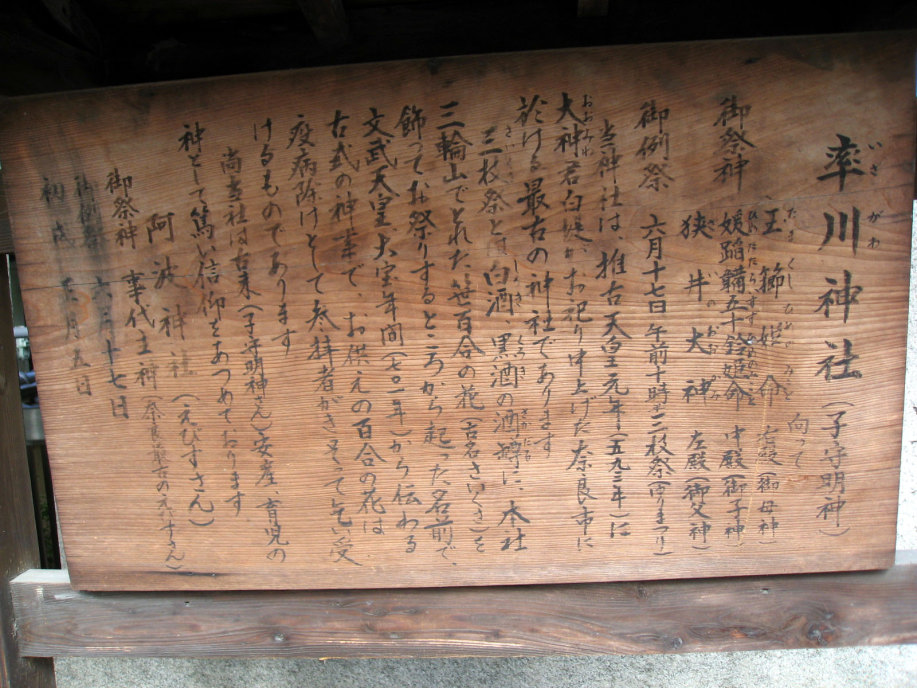 率川神社(子守明神)
いさがわ
向って
御祭神 玉櫛姫命 右殿(御母神)
たまくしひめのみこと
媛蹈鞴五十鈴姫命 中殿(御子神)
狭井大神 左殿(御父神)
さいのおおかみ
御例祭 六月十七日午前十時 三枝祭(ゆりまつり)
当神社は、推古天皇元年(五九三年)に
大神君白堤がお祀り申上げた奈良市に
おおみわ
於ける最古の神社であります
三枝祭と 白酒 黒酒の酒罇に、本社
さいくさ しろき くろき
三輪山でとれた笹百合の花(古名さいくさ)を
飾ってお祭りするところから起った名前で、
文武天皇、大宝年間(七〇一年)から伝わる
古式の神事で、お供えの百合の花は
疫病除けとして参拝者がきそって乞い受
けるものであります
尚当社は古来(子守明神さん)安産、育児の
神として篤い信仰をあつめております
阿波神社(えびすさん)
御祭神 事代主神(奈良最古のえびすさん)
御例祭 六月十七日
初戎 一月五日